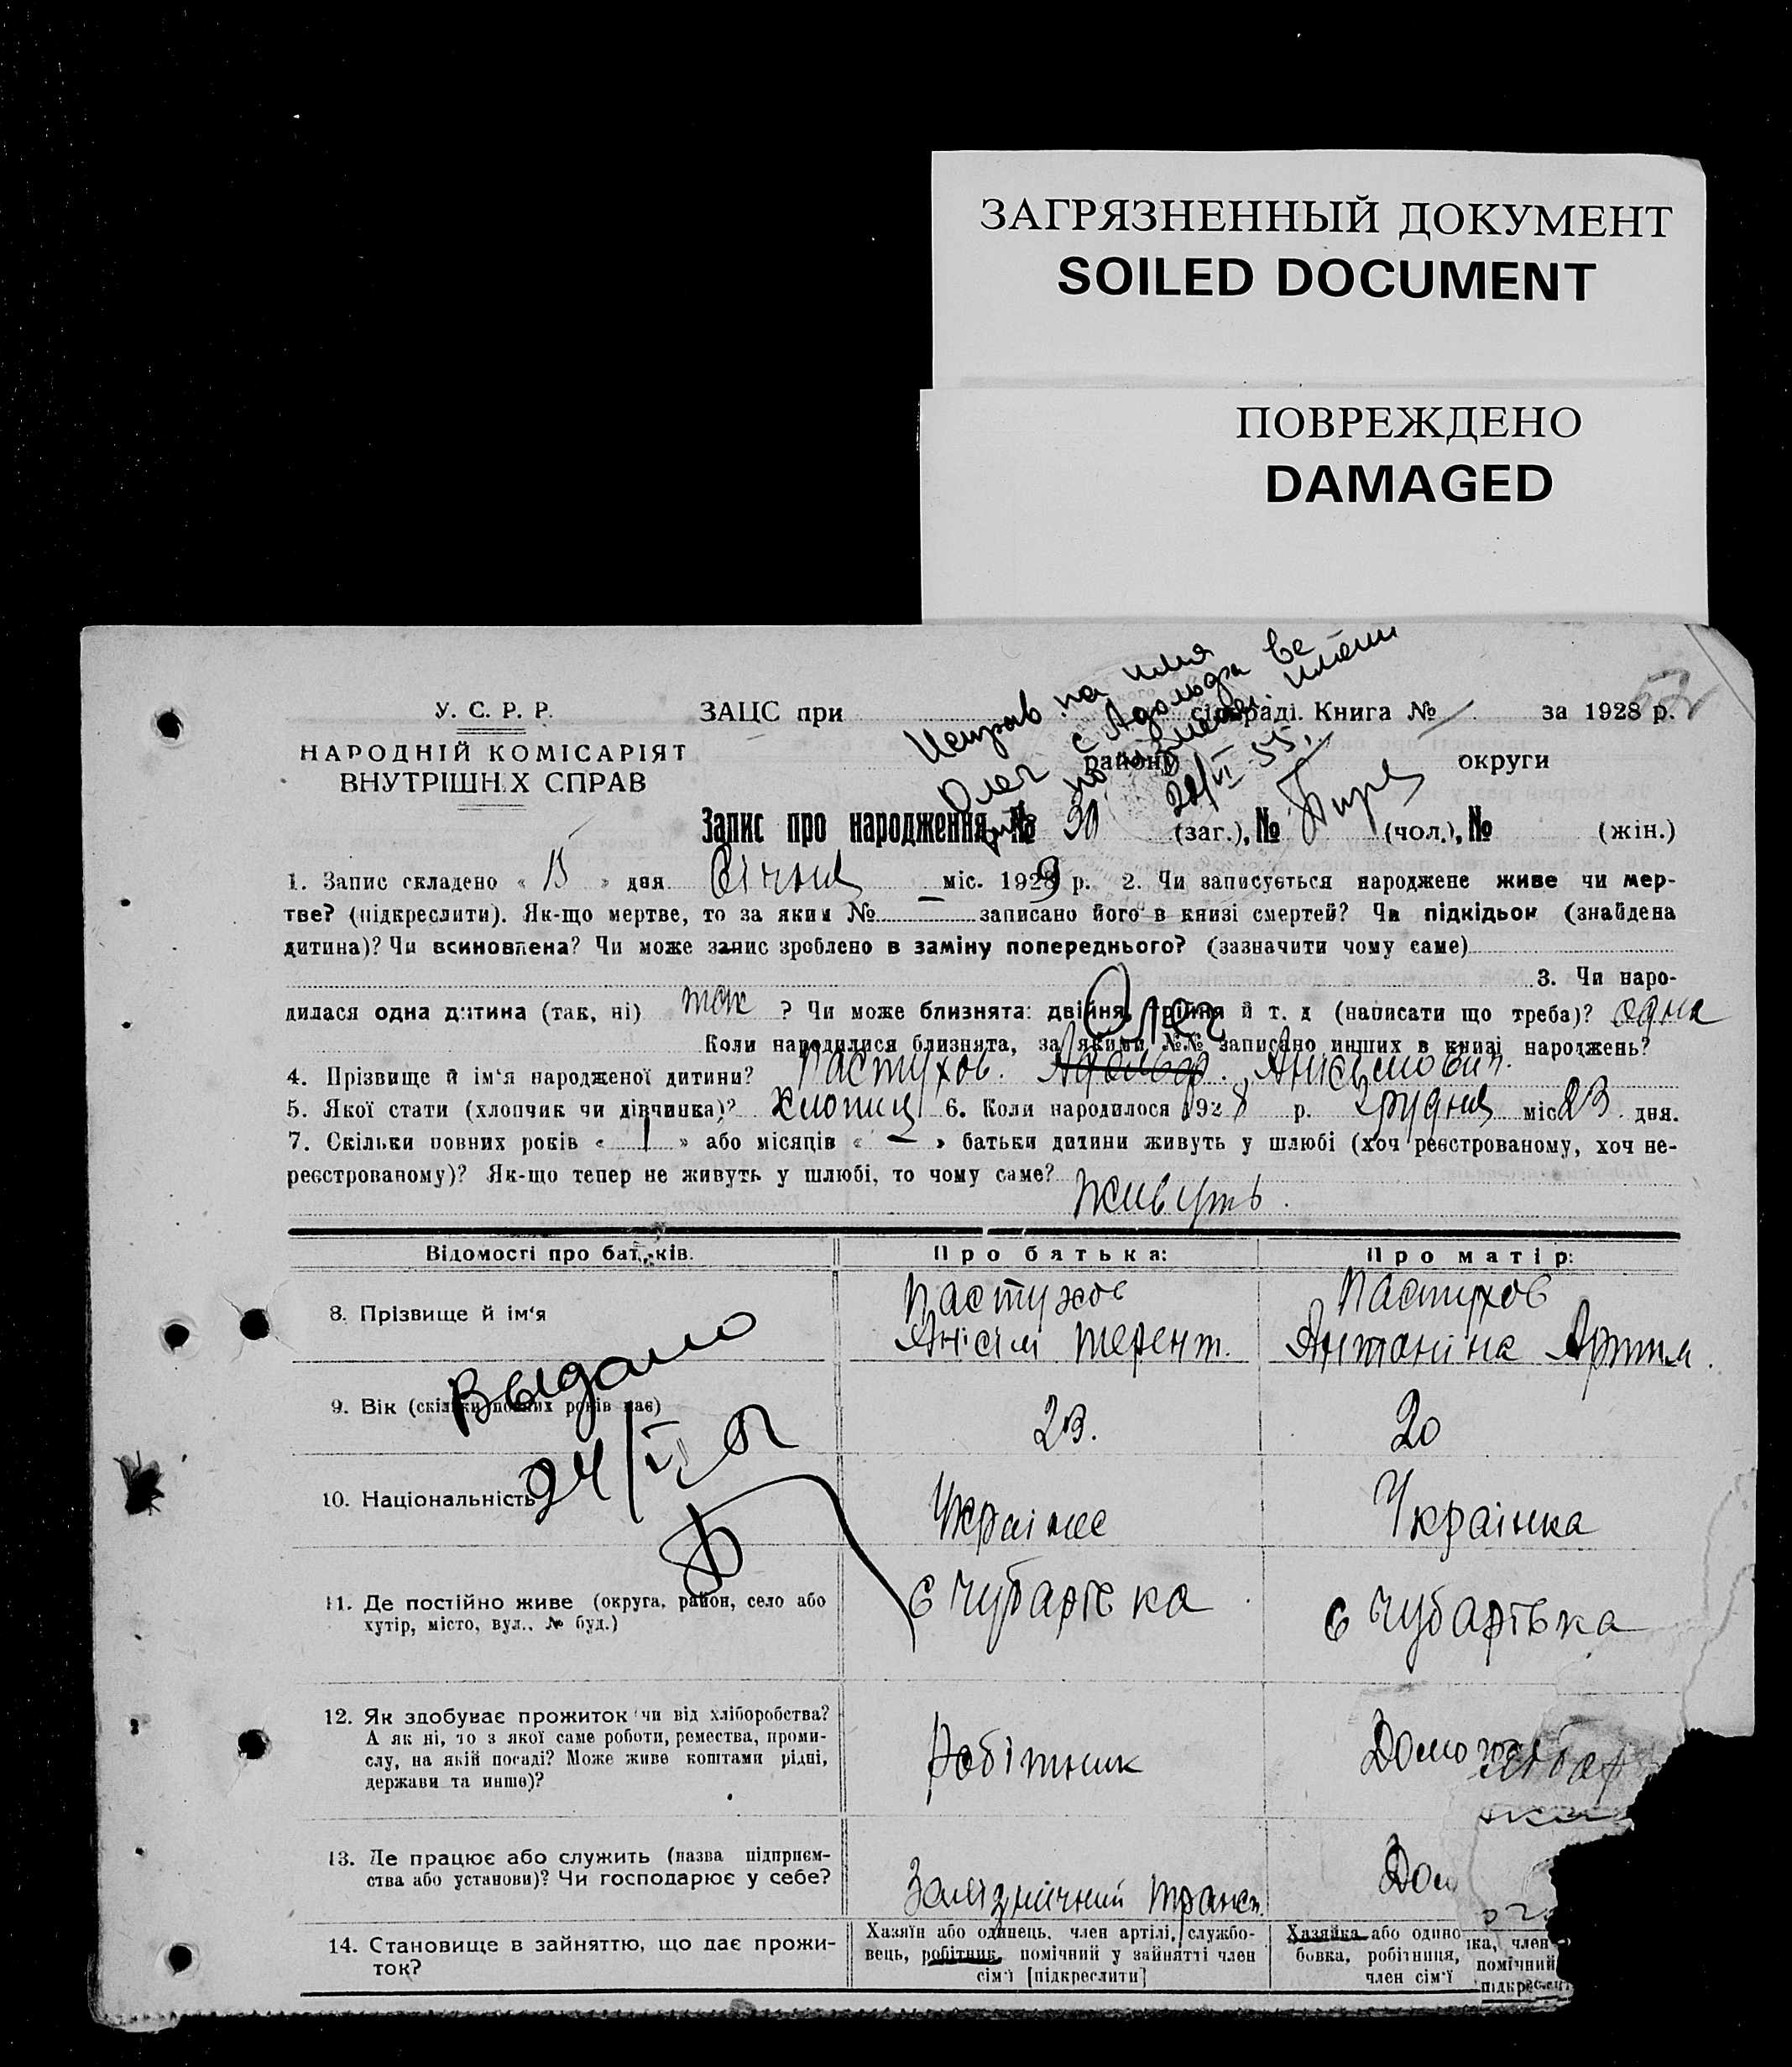 ЗАГРЯЗНЕННЫЙ ДОКУМЕНТ
SOILED DOCUMENT
ПОВРЕЖДЕНО
DAMAGED
Исправ на имя
Олег с Адольфа
28/VI 55.
У. С. Р. Р.
ЗАЦС при сільраді. Книга № за 1928 р.
НАРОДНІЙ КОМІСАРІЯТ
ВНУТРІШНІХ СПРАВ
району округи
Запис про народження № 30 (заг.), № (чол.), № (жін.)
1. Запис складено « 15 » дня Січня міс. 1929 р. 2. Чи записується народжене живе чи мер-
тве? (підкреслити). Як-що мертве, то за яким № записано його в книзі смертей? Чи підкідьок (знайдена
дитина)? Чи всиновлена? Чи може запис зроблено в заміну попереднього? (зазначити чому саме)
3. Чи наро-
дилася одна дитина (так, ні) так ? Чи може близнята: двійня, трійня й т. д (написати що треба)? одна
Коли народилися близнята, за якими №№ записано инших в книзі народжень?
Олег
4. Прізвище й ім'я народженої дитини? Пастухов. Адольф. Анисьмович.
5. Якої стати (хлопчик чи дівчинка)? хлопиц 6. Коли народилося 1928 р. грудня міс. 23 дня.
7. Скільки повних років « 1 » або місяців « — » батьки дитини живуть у шлюбі (хоч реєстрованому, хоч не-
реєстрованому)? Як-що тепер не живуть у шлюбі, то чому саме?
живуть.
Відомості про батьків. Про батька: Про матір:
8. Прізвище й ім'я
Пастухов Пастухов
Анісім Терент. Антаніна Артим.
Выдано
9. Вік (скільки повних років має) 23. 20
10. Національність Украінец Украінка
11. Де постійно живе (округа, район, село або
хутір, місто, вул., № буд.)
с Чубарівка с Чубарівка
12. Як здобуває прожиток чи від хліборобства?
А як ні, то з якої саме роботи, ремества, проми-
слу, на якій посаді? Може живе коштами рідні,
держави та инше)?
Робітник
13. Де працює або служить (назва підприєм-
ства або установи)? Чи господарює у себе?
Залізничний трансп. Дом
14. Становище в зайняттю, що дає прожи-
ток?
Хазяїн або одинець, член артілі, службо-
вець, робітник, помічний у зайнятті член
сім'ї [підкреслити]
Хазяйка або одино
бовка, робітниця,
член сім'ї
ка, член
помічний